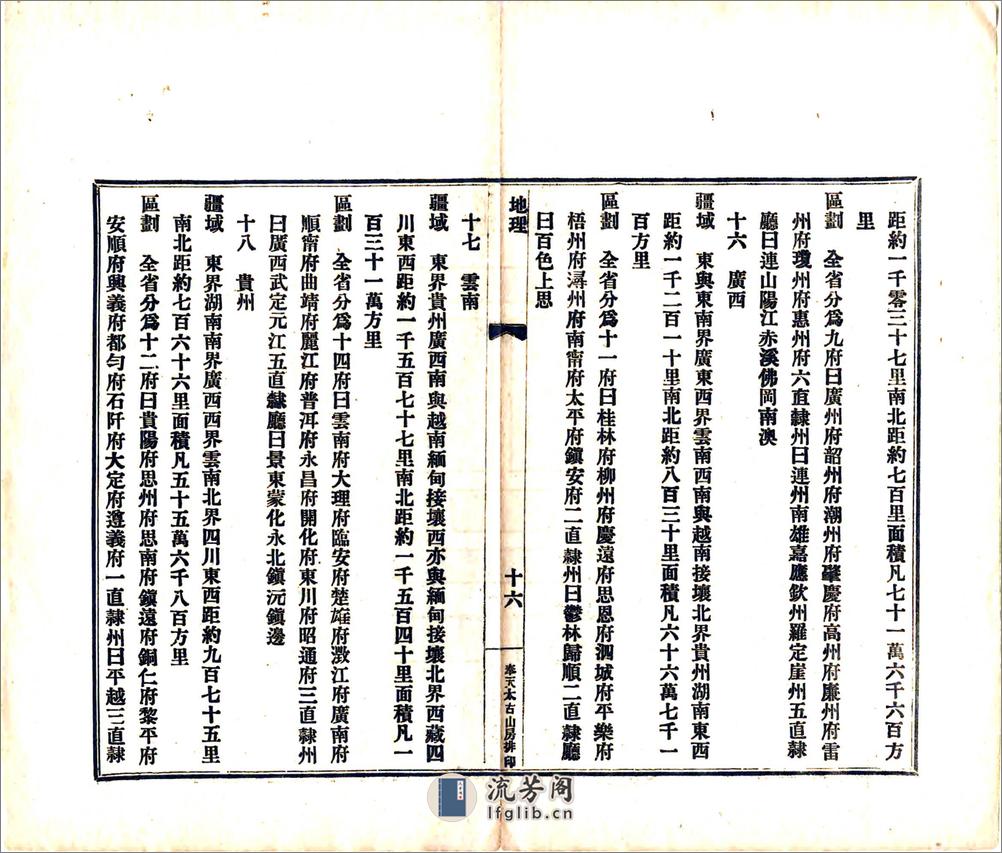 距約一千零三十七里南北距約七百里面積凡七十一萬六千六百方
里
區劃　全省分爲九府曰廣州府韶州府潮州府肇慶府高州府廉州府雷
州府瓊州府惠州府六直隸州曰連州南雄嘉應欽州羅定崖州五直隸
廳曰連山陽江赤溪佛岡南澳
十六　廣西
疆域　東與東南界廣東西界雲南西南與越南接壤北界貴州湖南東西
距約一千二百一十里南北距約八百三十里面積凡六十六萬七千一
百方里
區劃　全省分爲十一府曰桂林府柳州府慶遠府思恩府泗城府平樂府
梧州府潯州府南甯府太平府鎭安府二直隸州曰鬱林歸順二直隸廳
曰百色上思
地理
十六
奉天太古山房排印
十七　雲南
疆域　東界貴州廣西南與越南緬甸接壤西亦與緬甸接壤北界西藏四
川東西距約一千五百七十七里南北距約一千五百四十里面積凡一
百三十一萬方里
區劃　全省分爲十四府曰雲南府大理府臨安府楚雄府澂江府廣南府
順甯府曲靖府麗江府普洱府永昌府開化府東川府昭通府三直隸州
曰廣西武定元江五直隸廳曰景東蒙化永北鎭沅鎭邊
十八　貴州
疆域　東界湖南南界廣西西界雲南北界四川東西距約九百七十五里
南北距約七百六十六里面積凡五十五萬六千八百方里
區劃　全省分爲十二府曰貴陽府思州府思南府鎭遠府銅仁府黎平府
安順府興義府都勻府石阡府大定府遵義府一直隸州曰平越三直隸
流芳阁
lfglib.cn